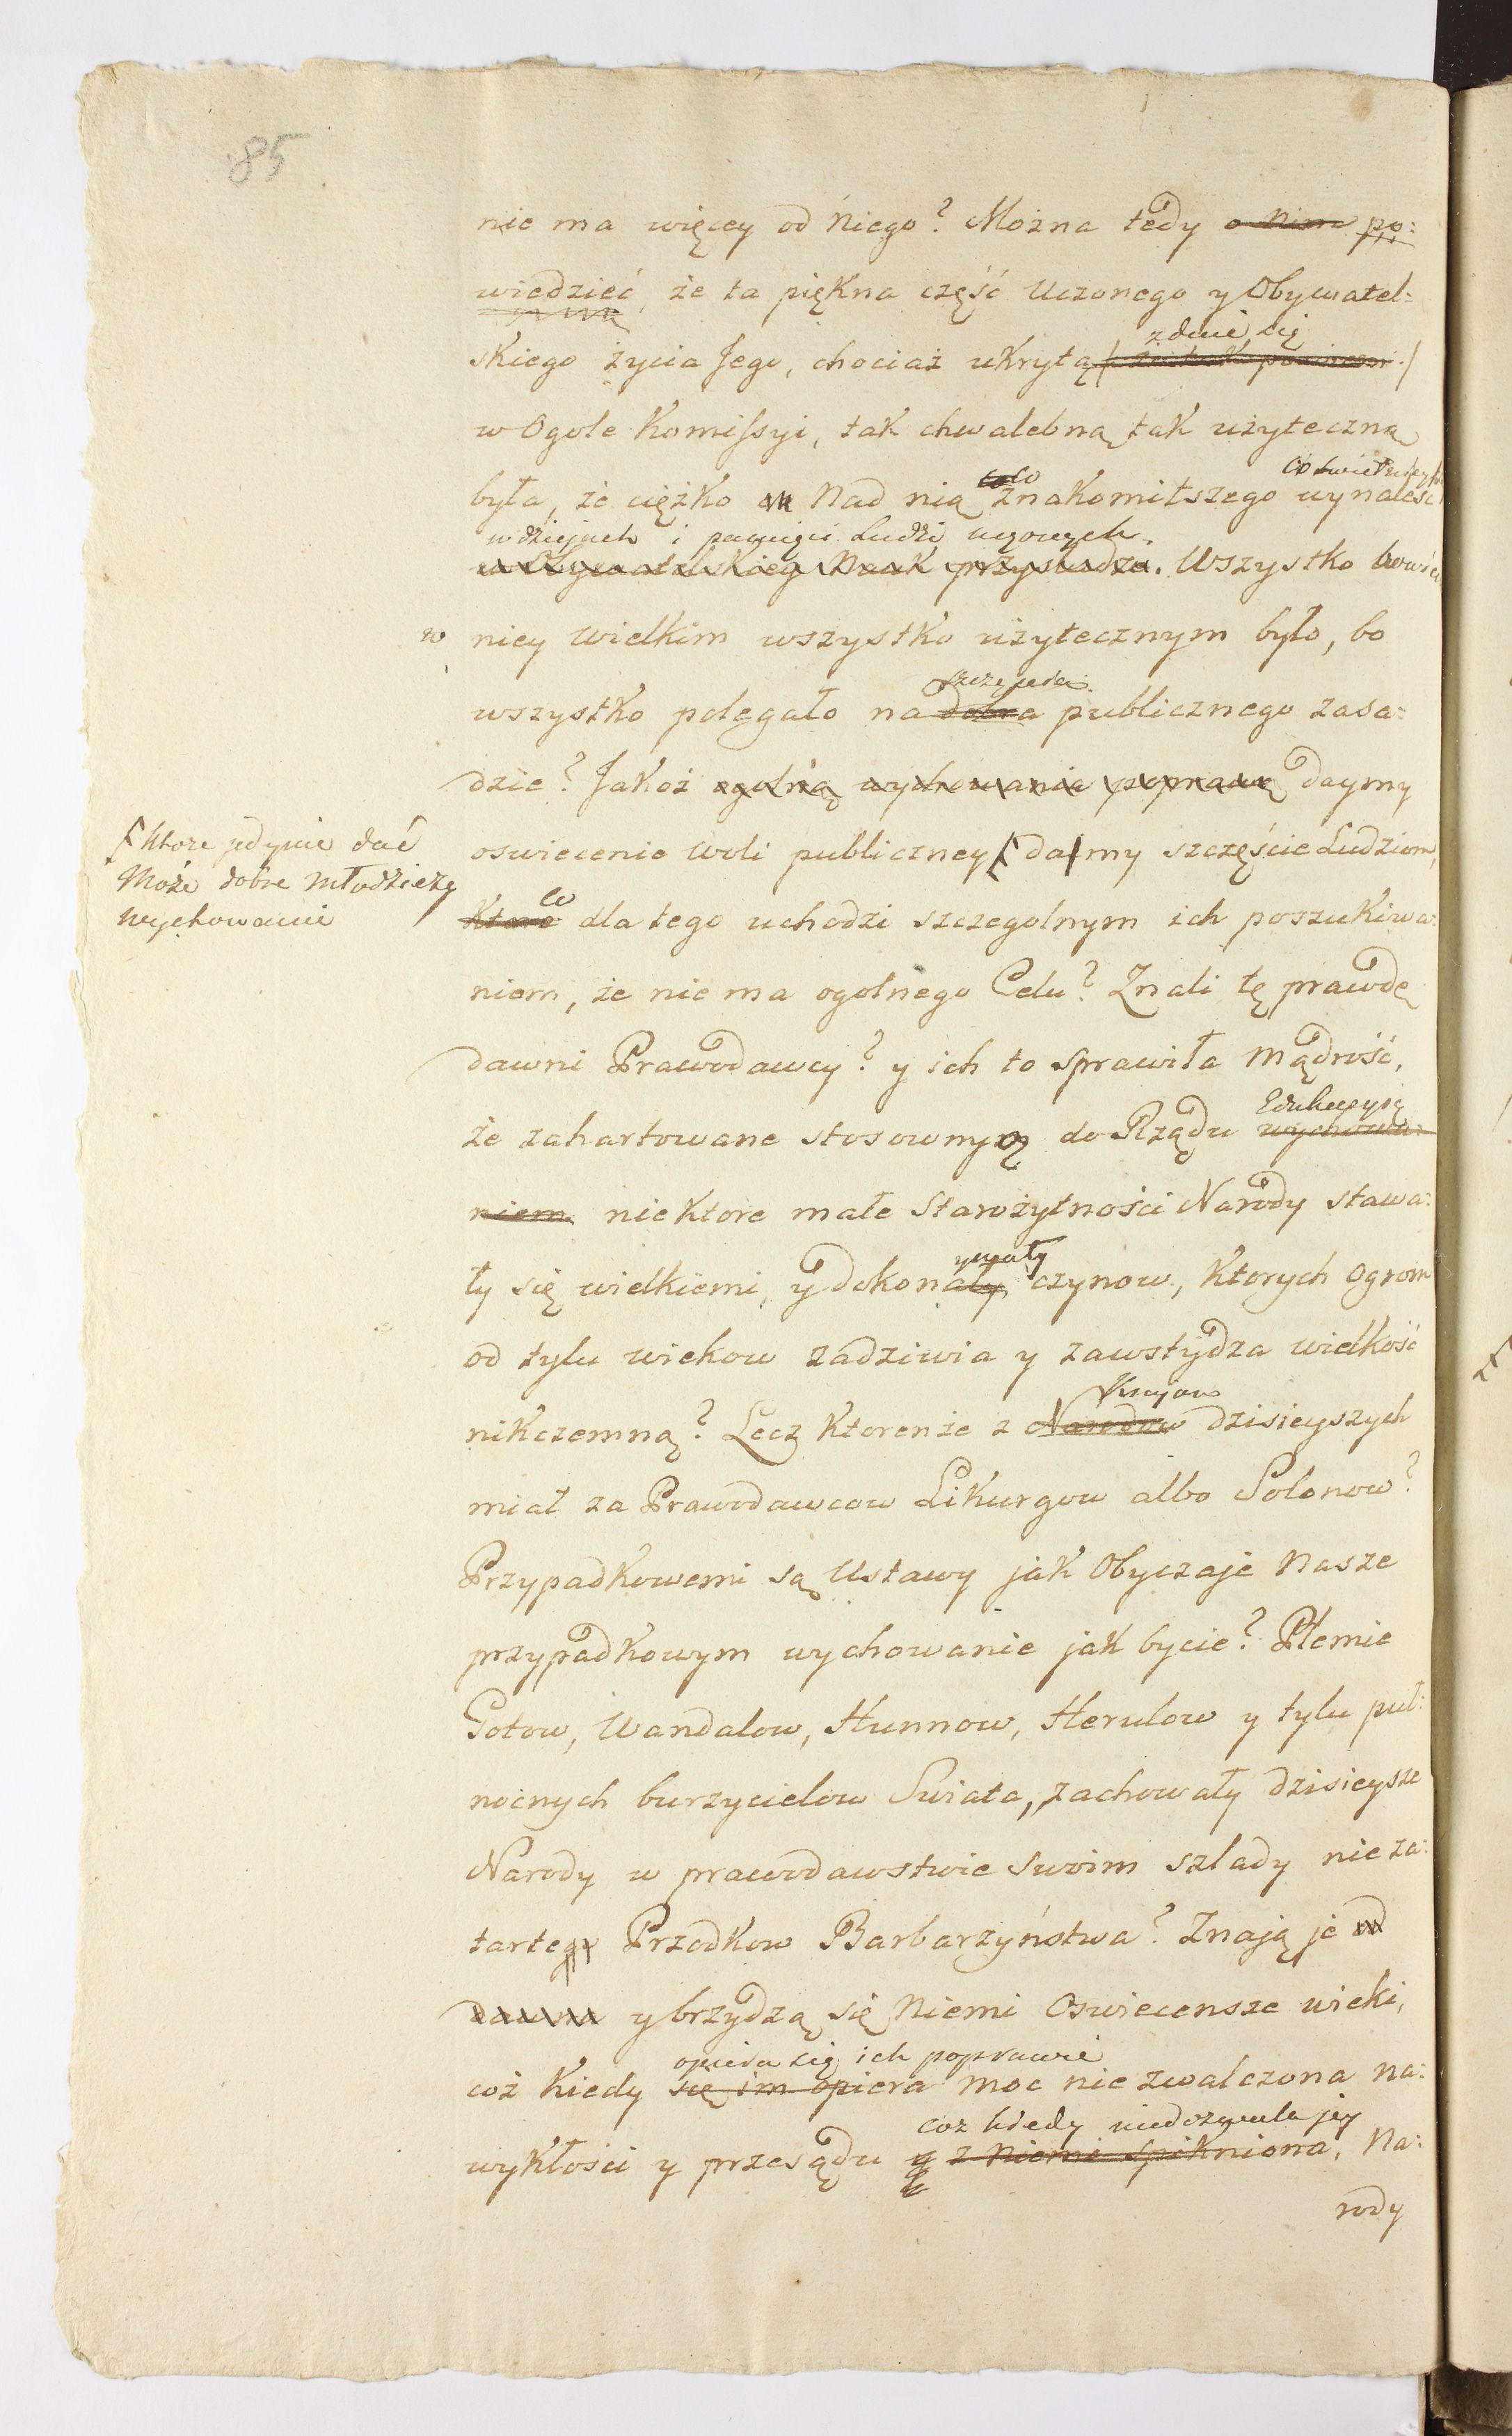 85
nie ma więcey od Niego? Można tedy o Nim po:
wiedzieć, że ta piękna część Uczonego y Obywatel:
zdaie się
skiego życia Jego, chociaż ukryta
w Ogole Komissyi, tak chwalebną tak użyteczną
co
była, że ciężko Nad nią znakomitszego wynaleść
w dziejach i pamięci Ludzi uczonych.
w Obywatelskiey Nauk przysłudze. Wszystko bowiem
w niey wielkim wszystko użytecznym było, bo
szczęścia
wszystko polegało na dobra publicznego zasa:
dzie? Jakoż ogolną wychowania poprawą daymy
oswiecenie woli publiczney damy szczęście Ludziom,
ktore jedynie dać
Może dobre młodzieży
wychowanie
co
Ktore dla tego uchodzi szczegolnym ich poszukiwa:
niem, że nie ma ogolnego Celu? Znali tę prawdę
dawni Prawodawcy? y ich to sprawiła Mądrość,
Edukacyią
że zahartowane stosowną do Rządu wychowa:
niem niektore małe Starożytności Narody stawa:
ywały
ły się wielkiemi, y dokonały czynow, ktorych Ogrom
od tylu wiekow zadziwia y zawstydza wielkość
Krajow
nikczemną? Lecz ktorenże z Narodow dzisieyszych
miał za Prawodawcow Likurgow albo Solonow?
Przypadkowemi są Ustawy jak Obyczaje Nasze
przypadkowym wychowanie jak bycie? Plemie
Gotow, Wandalow, Hunnow, Herulow y tylu puł:
nocnych burzycielow Swiata, zachowały dzisieysze
Narody w prawodawstwie swoim szlady nieza:
tarte Przodkow Barbarzyństwa? Znają je od
dawna y brzydzą się Niemi Oswiecensze wieki,
opiera się ich poprawie
coż kiedy się im opiera moc niezwalczona na:
coz kiedy niedozwala jey
wykłości y przesądu z Niemi spikniona, Na:
rody